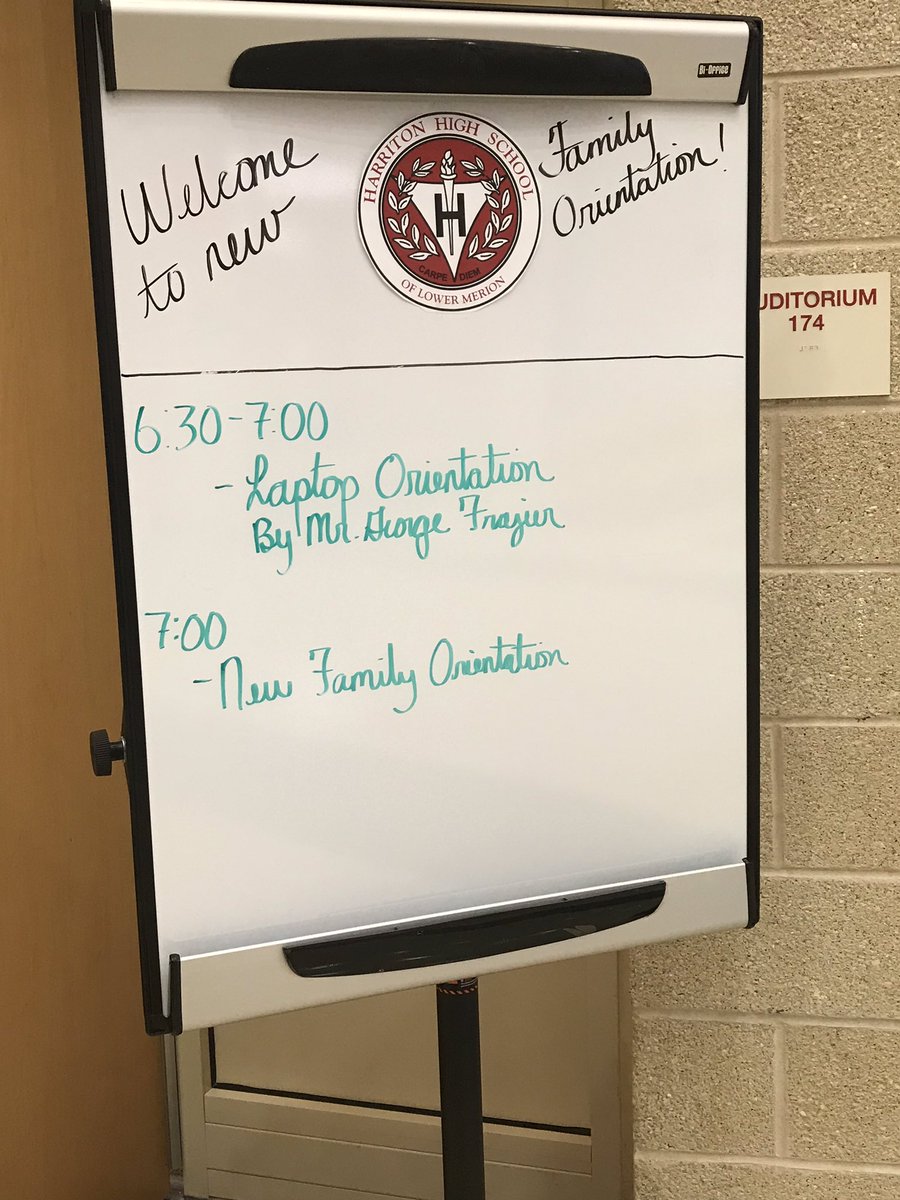 Bi-Office
Welcome
to new
HARRITON HIGH SCHOOL
H
CARPE DIEM
OF LOWER MERION
Family
Orientation!
UDITORIUM
174
6:30-7:00
- Laptop Orientation
By Mr. George Frazier
7:00
- New Family Orientation